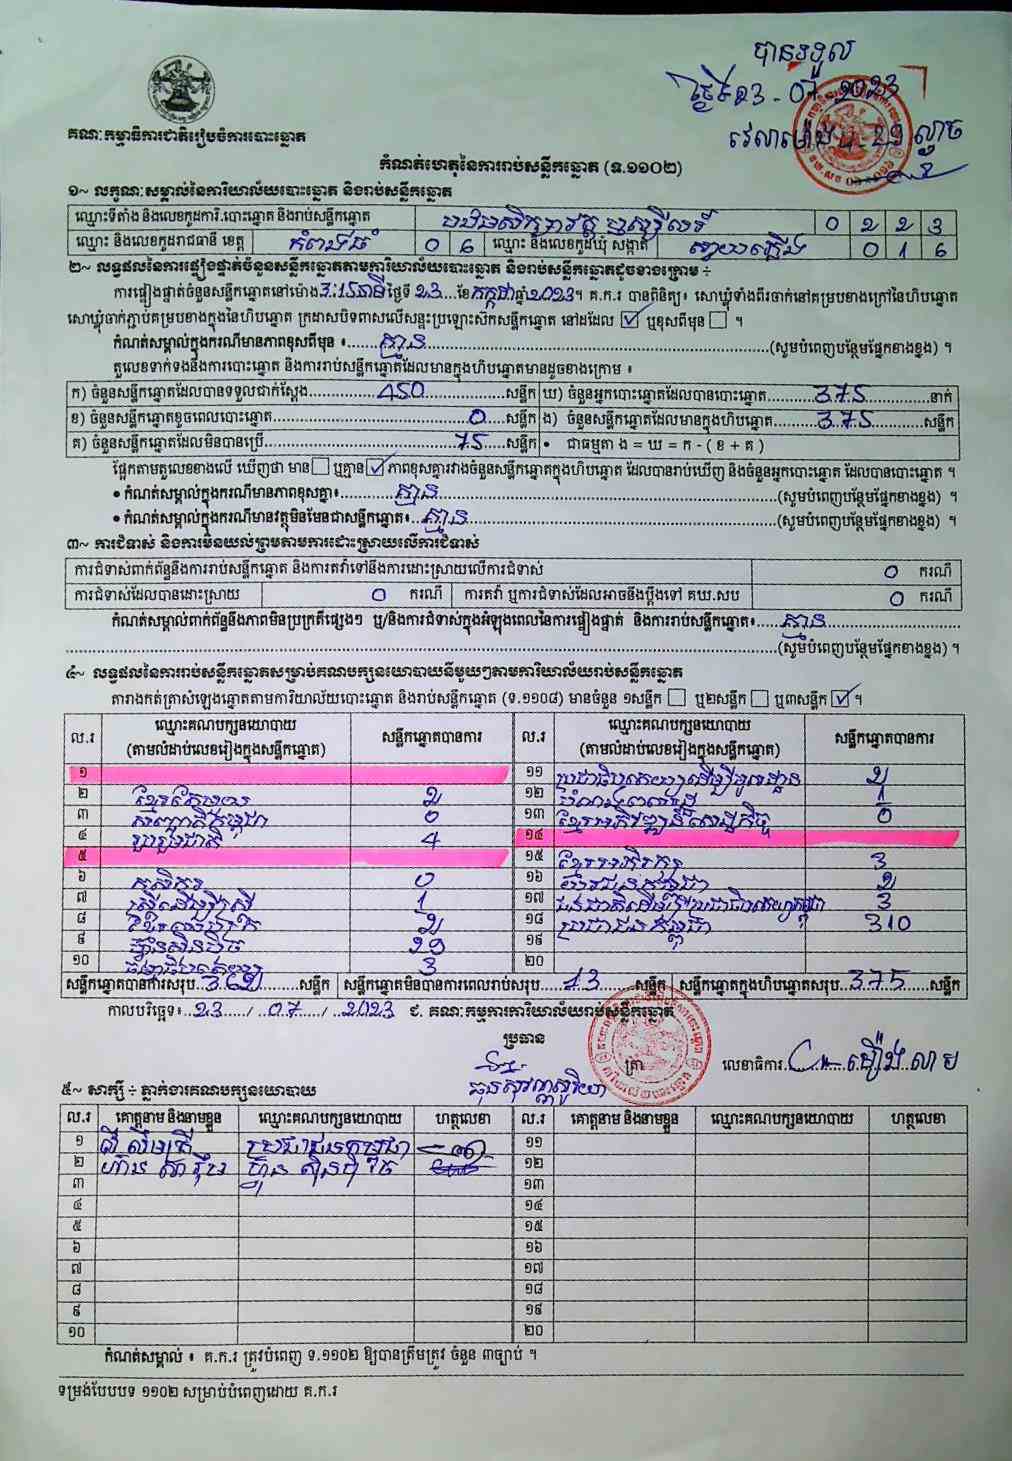 បានទទួល
ថ្ងៃទី23-07-2023
វេលាម៉ោង 29 ល្ងាច
គណៈកម្មាធិការជាតិរៀបចំការបោះឆ្នោត
កំណត់ហេតុនៃការរាប់សន្លឹកឆ្នោត (ទ.១១០២)
១~ លក្ខណៈសម្គាល់នៃការិយាល័យបោះឆ្នោត និងរាប់សន្លឹកឆ្នោត
ឈ្មោះទីតាំង និងលេខកូដការិ.បោះឆ្នោត និងរាប់សន្លឹកឆ្នោត 0 2 2 3
ឈ្មោះ និងលេខកូដរាជធានី ខេត្ត កំពង់ធំ 0 6 ឈ្មោះ និងលេខកូដឃុំ សង្កាត់ ស្វាយភ្លើង 0 1 6
២~ លទ្ធផលនៃការផ្ទៀងផ្ទាត់ចំនួនសន្លឹកឆ្នោតតាមការិយាល័យបោះឆ្នោត និងរាប់សន្លឹកឆ្នោតដូចខាងក្រោម ÷
ការផ្ទៀងផ្ទាត់ចំនួនសន្លឹកឆ្នោតនៅម៉ោង3:15នាទីថ្ងៃទី 23 ខែកក្កដាឆ្នាំ2023។ គ.ក.រ បានពិនិត្យ៖ សោឃ្មុំទាំងពីរចាក់នៅគម្របខាងក្រៅនៃហិបឆ្នោត
សោឃ្មុំចាក់ភ្ជាប់គម្របខាងក្នុងនៃហិបឆ្នោត ក្រដាសបិទពាសលើសន្ទះប្រឡោះស៊កសន្លឹកឆ្នោត នៅដដែល ☑ ឬខុសពីមុន ☐ ។
កំណត់សម្គាល់ក្នុងករណីមានភាពខុសពីមុន ៖ គ្មាន (សូមបំពេញបន្ថែមផ្នែកខាងខ្នង) ។
តួលេខទាក់ទងនឹងការបោះឆ្នោត និងការរាប់សន្លឹកឆ្នោតដែលមានក្នុងហិបឆ្នោតមានដូចខាងក្រោម ៖
ក) ចំនួនសន្លឹកឆ្នោតដែលបានទទួលជាក់ស្តែង 450 សន្លឹក ឃ) ចំនួនអ្នកបោះឆ្នោតដែលបានបោះឆ្នោត 375 នាក់
ខ) ចំនួនសន្លឹកឆ្នោតខូចពេលបោះឆ្នោត 0 សន្លឹក ង) ចំនួនសន្លឹកឆ្នោតដែលមានក្នុងហិបឆ្នោត 375 សន្លឹក
គ) ចំនួនសន្លឹកឆ្នោតដែលមិនបានប្រើ 75 សន្លឹក • ជាធម្មតា ង = ឃ = ក - ( ខ + គ )
ផ្អែកតាមតួលេខខាងលើ ឃើញថា មាន ☐ ឬគ្មាន ☑ ភាពខុសគ្នារវាងចំនួនសន្លឹកឆ្នោតក្នុងហិបឆ្នោត ដែលបានរាប់ឃើញ និងចំនួនអ្នកបោះឆ្នោត ដែលបានបោះឆ្នោត ។
• កំណត់សម្គាល់ក្នុងករណីមានភាពខុសគ្នា៖ គ្មាន (សូមបំពេញបន្ថែមផ្នែកខាងខ្នង) ។
• កំណត់សម្គាល់ក្នុងករណីមានវត្ថុមិនមែនជាសន្លឹកឆ្នោត៖ គ្មាន (សូមបំពេញបន្ថែមផ្នែកខាងខ្នង) ។
៣~ ការជំទាស់ និងការមិនយល់ព្រមតាមការដោះស្រាយលើការជំទាស់
ការជំទាស់ពាក់ព័ន្ធនឹងការរាប់សន្លឹកឆ្នោត និងការតវ៉ាទៅនឹងការដោះស្រាយលើការជំទាស់ 0 ករណី
ការជំទាស់ដែលបានដោះស្រាយ 0 ករណី ការតវ៉ា ឬការជំទាស់ដែលអាចនឹងប្តឹងទៅ គឃ.សប 0 ករណី
កំណត់សម្គាល់ពាក់ព័ន្ធនឹងភាពមិនប្រក្រតីផ្សេងៗ ឬ/និងការជំទាស់ក្នុងអំឡុងពេលនៃការផ្ទៀងផ្ទាត់ និងការរាប់សន្លឹកឆ្នោត៖ គ្មាន
(សូមបំពេញបន្ថែមផ្នែកខាងខ្នង) ។
៤~ លទ្ធផលនៃការរាប់សន្លឹកឆ្នោតសម្រាប់គណបក្សនយោបាយនីមួយៗតាមការិយាល័យរាប់សន្លឹកឆ្នោត
តារាងកត់ត្រាសំឡេងឆ្នោតតាមការិយាល័យបោះឆ្នោត និងរាប់សន្លឹកឆ្នោត (ទ.១១០៨) មានចំនួន ១សន្លឹក ☐ ឬ២សន្លឹក ☐ ឬ៣សន្លឹក ☑ ។
ល.រ ឈ្មោះគណបក្សនយោបាយ (តាមលំដាប់លេខរៀងក្នុងសន្លឹកឆ្នោត) សន្លឹកឆ្នោតបានការ ល.រ ឈ្មោះគណបក្សនយោបាយ (តាមលំដាប់លេខរៀងក្នុងសន្លឹកឆ្នោត) សន្លឹកឆ្នោតបានការ
១ ១១ ប្រជាធិបតេយ្យដើម្បីមូលដ្ឋាន ២
២ ខ្មែរតែមួយ ២ ១២ 1
៣ សញ្ជាតិកម្ពុជា 0 ១៣ ខ្មែរអភិវឌ្ឍន៍សេដ្ឋកិច្ច 0
៤ រួបរួមជាតិ 4 ១៤
៥ ១៥ ខ្មែរអភិរក្ស 3
៦ កសិករ 0 ១៦ យុវជនកម្ពុជា ២
៧ ស្ត្រីដើម្បីស្ត្រី 1 ១៧ 3
៨ ២ ១៨ ប្រជាជនកម្ពុជា 310
៩ ហ្វ៊ុនស៊ិនប៉ិច 29 ១៩
១០ ធម្មាធិបតេយ្យ 3 ២០
សន្លឹកឆ្នោតបានការសរុប 36២ សន្លឹក សន្លឹកឆ្នោតមិនបានការពេលរាប់សរុប 13 សន្លឹក សន្លឹកឆ្នោតក្នុងហិបឆ្នោតសរុប 375 សន្លឹក
កាលបរិច្ឆេទ៖ 23 / 07 / 2023 ជ. គណៈកម្មការការិយាល័យរាប់សន្លឹកឆ្នោត
ប្រធាន
ត្រា លេខាធិការ
៥~ សាក្សី ÷ ភ្នាក់ងារគណបក្សនយោបាយ
ល.រ គោត្តនាម និងនាមខ្លួន ឈ្មោះគណបក្សនយោបាយ ហត្ថលេខា ល.រ គោត្តនាម និងនាមខ្លួន ឈ្មោះគណបក្សនយោបាយ ហត្ថលេខា
១ ប្រជាជនកម្ពុជា ១១
២ ហ៊្វុន ស៊ិនប៉ិច ១២
៣ ១៣
៤ ១៤
៥ ១៥
៦ ១៦
៧ ១៧
៨ ១៨
៩ ១៩
១០ ២០
កំណត់សម្គាល់ ៖ គ.ក.រ ត្រូវបំពេញ ទ.១១០២ ឱ្យបានត្រឹមត្រូវ ចំនួន ៣ច្បាប់ ។
ទម្រង់បែបបទ ១១០២ សម្រាប់បំពេញដោយ គ.ក.រ